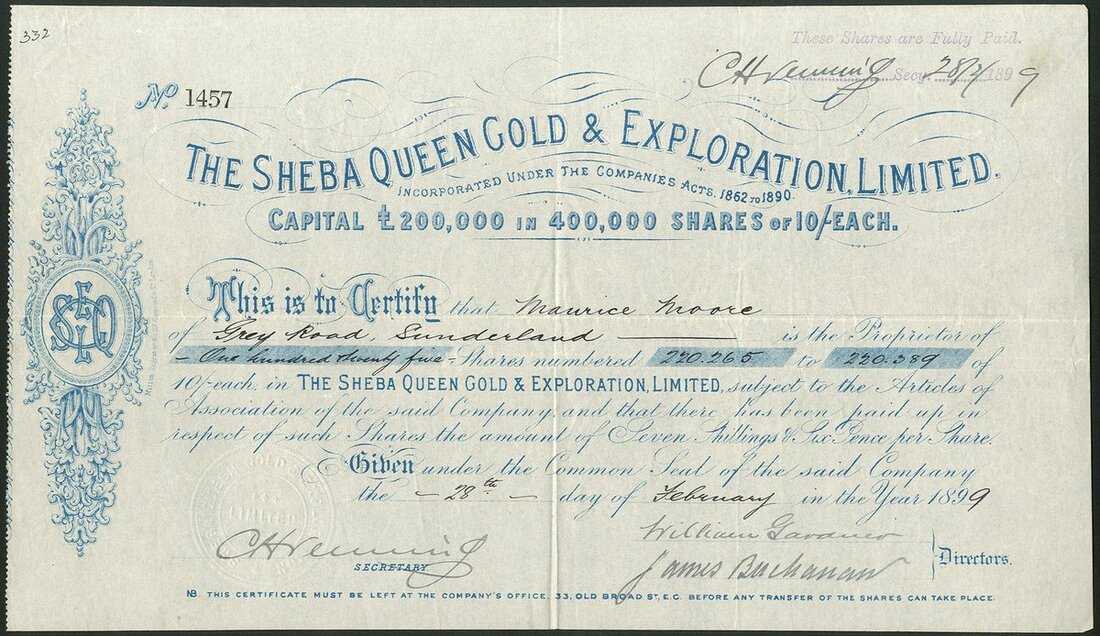 332
These Shares are Fully Paid.
Secy. 28/2/1899
No. 1457
THE SHEBA QUEEN GOLD & EXPLORATION, LIMITED.
INCORPORATED UNDER THE COMPANIES ACTS, 1862 TO 1890.
CAPITAL £200,000 IN 400,000 SHARES OF 10/- EACH.
This is to Certify that Maurice Moore
of Grey Road, Sunderland is the Proprietor of
- One hundred twenty five - Shares numbered 220.265 to 220.389 of
10/- each in THE SHEBA QUEEN GOLD & EXPLORATION, LIMITED, subject to the Articles of
Association of the said Company, and that there has been paid up in
respect of such Shares the amount of Seven Shillings & Six Pence per Share.
Given under the Common Seal of the said Company
the - 28th - day of February in the Year 1899
William Gardner
James Buchanan
Directors.
SECRETARY.
NB. THIS CERTIFICATE MUST BE LEFT AT THE COMPANY'S OFFICE, 33, OLD BROAD ST, E.C. BEFORE ANY TRANSFER OF THE SHARES CAN TAKE PLACE.